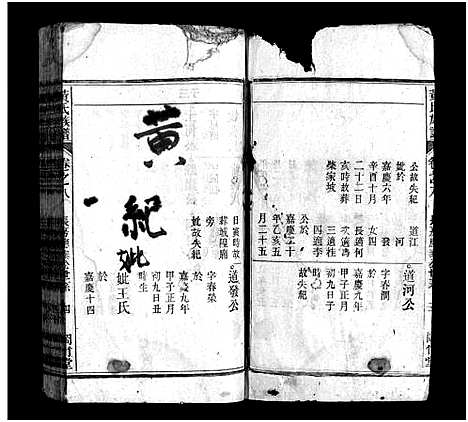 黃氏族譜
卷之八
道江
公故失紀
號於 河
嘉慶六年
辛酉十月
二十二日
亥時故葬
柴家坡
發
女四
長適何
次適馮
三適桂
四適李
道河公
字春澗
嘉慶九年
甲子正月
初九日子
時
故失紀
公於
嘉慶二十
年乙亥五
月二十五
日寅時故
葬城隍廟
旁
號故失紀
道發公
字春榮
於
甲子正月
初九日丑
時生
妣王氏
於
嘉慶十四
黃紀妣
黃氏族譜
卷之八
四